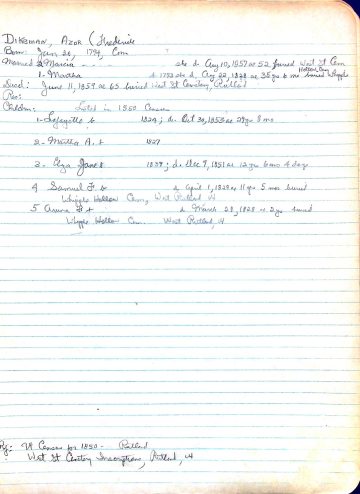 DIKEMAN, AZOR (Frederick
Born: Jan 26, 1794, Conn
Married 2. Marcia - she d. Aug 10, 1857 ae 52 buried West St Cem
1 - Martha b 1793 she d. Aug 22, 1828 ae 35 yrs 6 mo buried Whipple Hollow Cem
Died: June 11, 1859 ae 65 buried West St Cemetery, Rutland
Res:
Children: Listed in 1850 Census
1 - Lafayette b 1824; d. Oct 30, 1853 ae 29 yr 8 mo
2 - Martha A. b 1827
3 - Eliza Jane b 1839; d. Dec 7, 1851 ae 12 yr 6 mo 4 day
4 Samuel F. b d. April 1, 1829 ae 11 yr 5 mos buried
Whipple Hollow Cem, West Rutland Vt
5 b d. March 28, 1828 ae 2 yr buried
Whipple Hollow Cem. West Rutland, Vt
Vt Census for 1850 - Rutland
West St Cemetery Inscriptions, Rutland, Vt